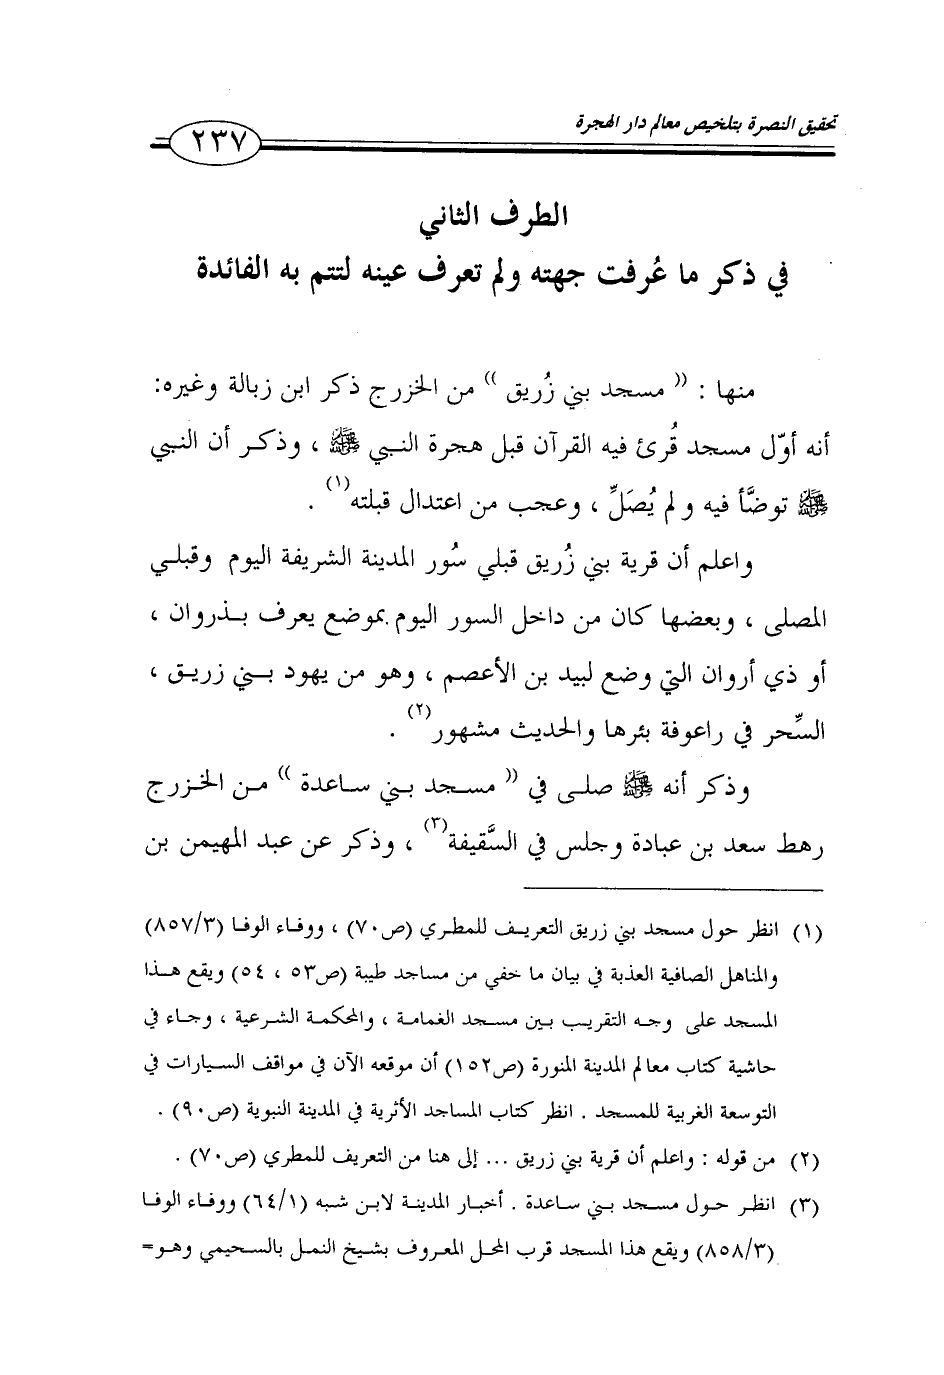 تحقيق النصرة بتلخيص معالم دار الهجرة
٢٣٧
الطرف الثاني
في ذكر ما عُرفت جهته ولم تعرف عينه لتتم به الفائدة
منها : (( مسجد بني زُريق )) من الخزرج ذكر ابن زبالة وغيره:
أنه أوّل مسجد قُرئ فيه القرآن قبل هجرة النبي ﷺ ، وذكر أن النبي
ﷺ توضَّأ فيه و لم يُصَلِّ ، وعجب من اعتدال قبلته(١) .
واعلم أن قرية بني زُريق قبلي سُور المدينة الشريفة اليوم وقبلي
المصلى ، وبعضها كان من داخل السور اليوم بموضع يعرف بذروان ،
أو ذي أروان التي وضع لبيد بن الأعصم ، وهو من يهود بني زريق ،
السِّحر في راعوفة بئرها والحديث مشهور(٢) .
وذكر أنه ﷺ صلى في (( مسجد بني ساعدة )) من الخزرج
رهط سعد بن عبادة وجلس في السَّقيفة(٣) ، وذكر عن عبد المهيمن بن
(١) انظر حول مسجد بني زريق التعريف للمطري (ص٧٠) ، ووفاء الوفا (٨٥٧/٣)
والمناهل الصافية العذبة في بيان ما خفي من مساجد طيبة (ص٥٣ ، ٥٤) ويقع هذا
المسجد على وجه التقريب بين مسجد الغمامة ، والمحكمة الشرعية ، وجاء في
حاشية كتاب معالم المدينة المنورة (ص١٥٢) أن موقعه الآن في مواقف السيارات في
التوسعة الغربية للمسجد . انظر كتاب المساجد الأثرية في المدينة النبوية (ص٩٠) .
(٢) من قوله : واعلم أن قرية بني زريق ... إلى هنا من التعريف للمطري (ص٧٠) .
(٣) انظر حول مسجد بني ساعدة . أخبار المدينة لابن شبه (٦٤/١) ووفاء الوفا
(٨٥٨/٣) ويقع هذا المسجد قرب المحل المعروف بشيخ النمل بالسحيمي وهو=